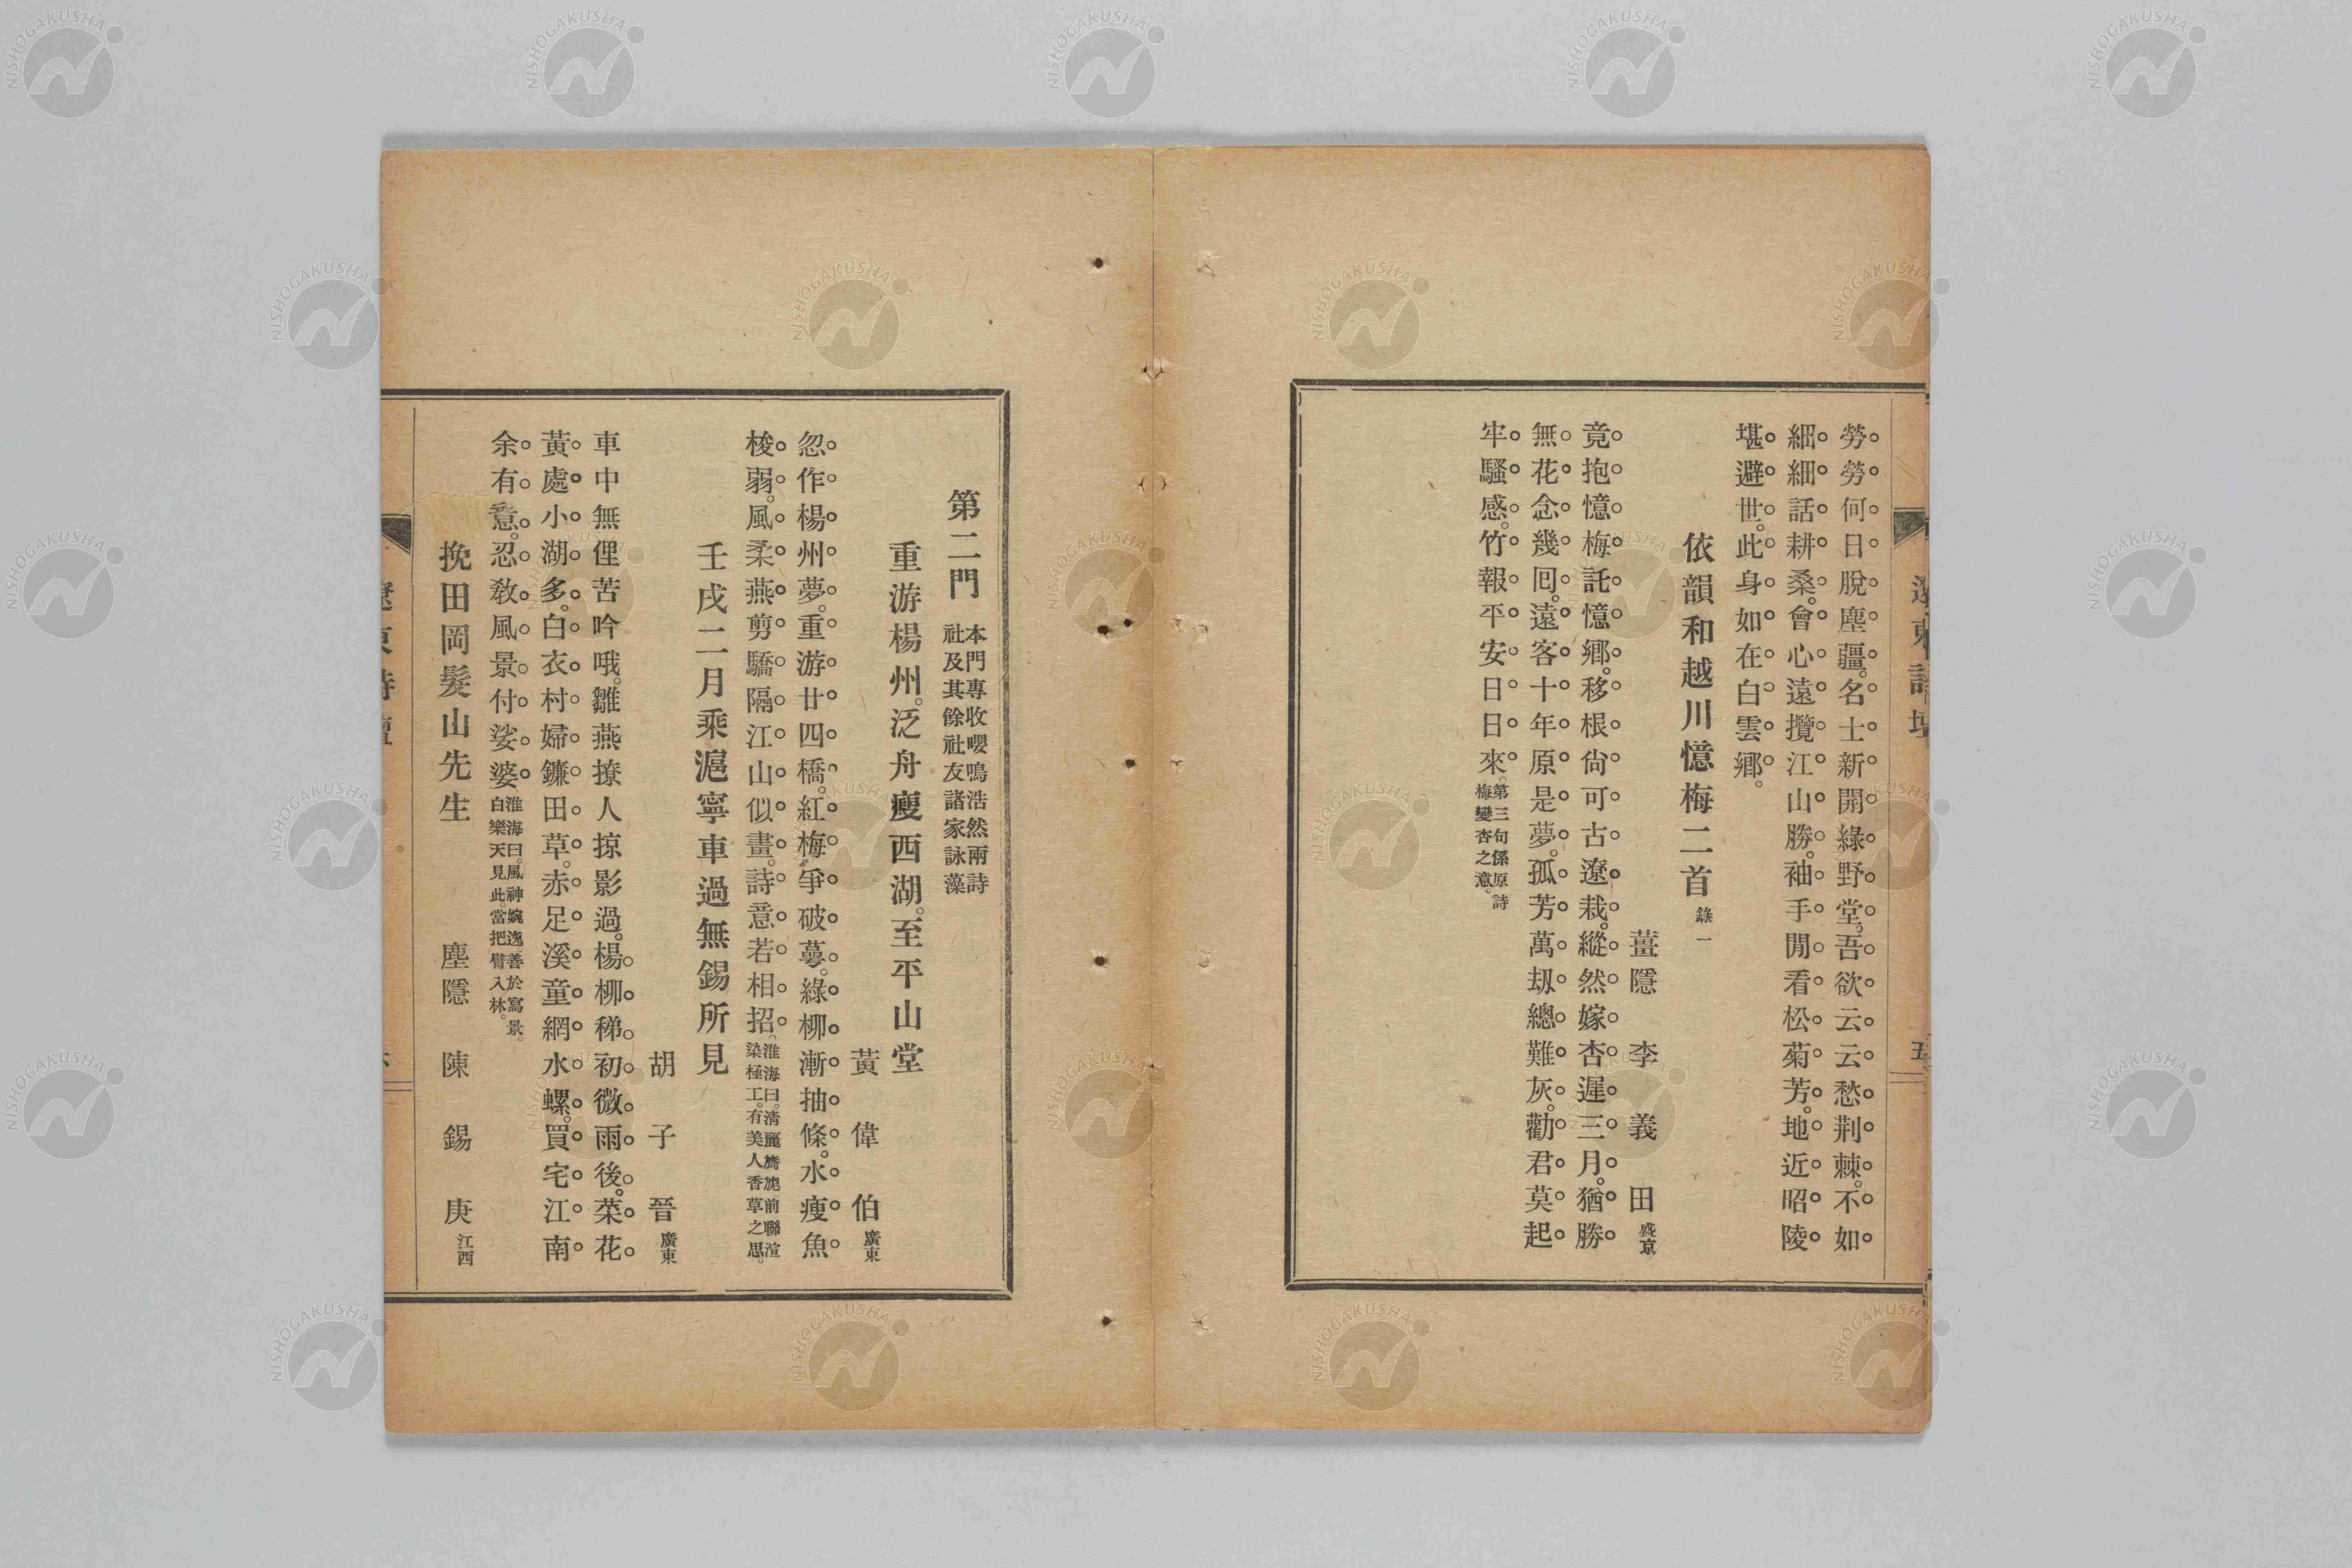 勞勞何日脫塵疆。名士新開綠野堂。吾欲云云愁荆棘。不如
細細話耕桑。會心遠攬江山勝。袖手閒看松菊芳。地近昭陵
堪避世。此身如在白雲鄉。
依韻和越川憶梅二首 錄一
薑隱 李義田 盛京
竟抱憶梅託憶鄉。移根尙可古遼栽。縱然嫁杏遲三月。猶勝
無花念幾囘。遠客十年原是夢。孤芳萬刼總難灰。勸君莫起
牢騷感。竹報平安日日來。第三句係原詩
梅變杏之意。
遼東詩壇
五
第二門 本門專收嚶鳴浩然兩詩
社及其餘社友諸家詠藻
重游楊州。泛舟瘦西湖。至平山堂
黃偉伯 廣東
忽作楊州夢。重游廿四橋。紅梅爭破萼。綠柳漸抽條。水瘦魚
梭弱。風柔燕剪驕。隔江山似畫。詩意若相招。淮海曰。淸麗旖旎前聯渲
染極工。有美人香草之思。
壬戌二月乘滬寧車過無錫所見
胡子晉 廣東
車中無俚苦吟哦。雛燕撩人掠影過。楊柳稊初微雨後。菜花
黃處小湖多。白衣村婦鐮田草。赤足溪童網水螺。買宅江南
余有意。忍敎風景付娑婆。淮海曰。風神婉逸。善於寫景。
白樂天見此。當把臂入林。
挽田岡髮山先生
塵隱 陳錫庚 江西
遼東詩壇
NISHOGAKUSHA